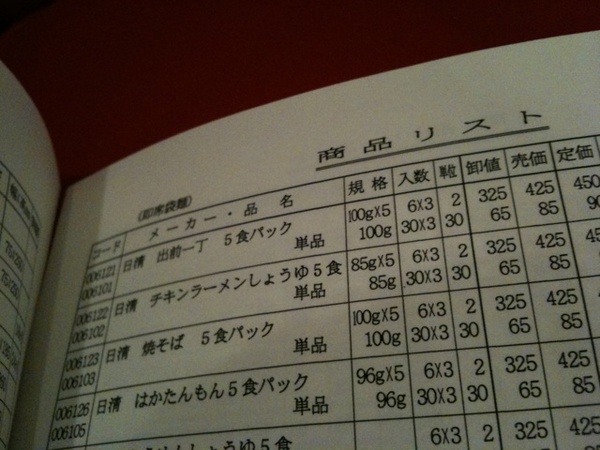 商品リスト
(即席袋麺)
コード メーカー・品名 規格 入数 単位 卸値 売価 定価
006121 日清 出前一丁 5食パック 100g×5 6×3 2 325 425 450
006101 単品 100g 30×3 30 65 85 90
006122 日清 チキンラーメンしょうゆ5食 85g×5 6×3 2 325 425
006102 単品 85g 30×3 30 65 85
006123 日清 焼そば 5食パック 100g×5 6×3 2 325 425
006103 単品 100g 30×3 30 65 85
006126 日清 はかたんもん5食パック 96g×5 6×3 2 325 425
006105 単品 96g 30×3 30 65 85
しょうゆ5食 6×3 2 325 425